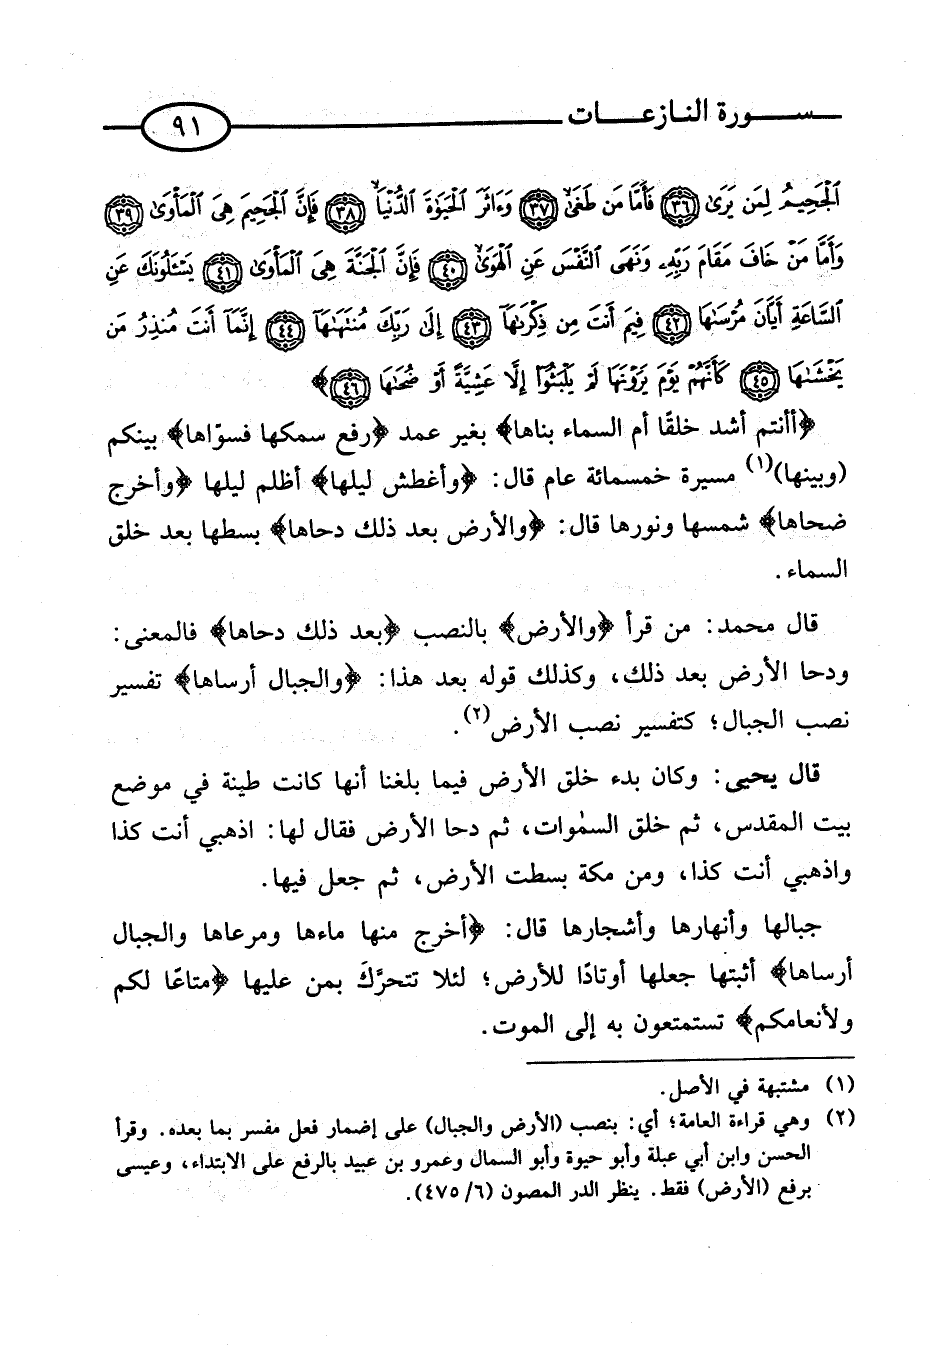 ســورة النــازعــات
٩١
ٱلْجَحِيمُ لِمَن يَرَىٰ ﴿٣٦﴾ فَأَمَّا مَن طَغَىٰ ﴿٣٧﴾ وَءَاثَرَ ٱلْحَيَوٰةَ ٱلدُّنْيَا ﴿٣٨﴾ فَإِنَّ ٱلْجَحِيمَ هِىَ ٱلْمَأْوَىٰ ﴿٣٩﴾
وَأَمَّا مَنْ خَافَ مَقَامَ رَبِّهِۦ وَنَهَى ٱلنَّفْسَ عَنِ ٱلْهَوَىٰ ﴿٤٠﴾ فَإِنَّ ٱلْجَنَّةَ هِىَ ٱلْمَأْوَىٰ ﴿٤١﴾ يَسْـَٔلُونَكَ عَنِ
ٱلسَّاعَةِ أَيَّانَ مُرْسَىٰهَا ﴿٤٢﴾ فِيمَ أَنتَ مِن ذِكْرَىٰهَآ ﴿٤٣﴾ إِلَىٰ رَبِّكَ مُنتَهَىٰهَآ ﴿٤٤﴾ إِنَّمَآ أَنتَ مُنذِرُ مَن
يَخْشَىٰهَا ﴿٤٥﴾ كَأَنَّهُمْ يَوْمَ يَرَوْنَهَا لَمْ يَلْبَثُوٓا۟ إِلَّا عَشِيَّةً أَوْ ضُحَىٰهَا ﴿٤٦﴾﴾
﴿أأنتم أشد خلقًا أم السماء بناها﴾ بغير عمد ﴿رفع سمكها فسوّاها﴾ بينكم
(وبينها)(١) مسيرة خمسمائة عام قال: ﴿وأغطش ليلها﴾ أظلم ليلها ﴿وأخرج
ضحاها﴾ شمسها ونورها قال: ﴿والأرض بعد ذلك دحاها﴾ بسطها بعد خلق
السماء.
قال محمد: من قرأ ﴿والأرض﴾ بالنصب ﴿بعد ذلك دحاها﴾ فالمعنى:
ودحا الأرض بعد ذلك، وكذلك قوله بعد هذا: ﴿والجبال أرساها﴾ تفسير
نصب الجبال؛ كتفسير نصب الأرض(٢).
قال يحيى: وكان بدء خلق الأرض فيما بلغنا أنها كانت طينة في موضع
بيت المقدس، ثم خلق السمٰوات، ثم دحا الأرض فقال لها: اذهبي أنت كذا
واذهبي أنت كذا، ومن مكة بسطت الأرض، ثم جعل فيها.
جبالها وأنهارها وأشجارها قال: ﴿أخرج منها ماءها ومرعاها والجبال
أرساها﴾ أثبتها جعلها أوتادًا للأرض؛ لئلا تتحرَّكَ بمن عليها ﴿متاعًا لكم
ولأنعامكم﴾ تستمتعون به إلى الموت.
(١) مشتبهة في الأصل.
(٢) وهي قراءة العامة؛ أي: بنصب (الأرض والجبال) على إضمار فعل مفسر بما بعده. وقرأ
الحسن وابن أبي عبلة وأبو حيوة وأبو السمال وعمرو بن عبيد بالرفع على الابتداء، وعيسى
برفع (الأرض) فقط. ينظر الدر المصون (٦/ ٤٧٥).